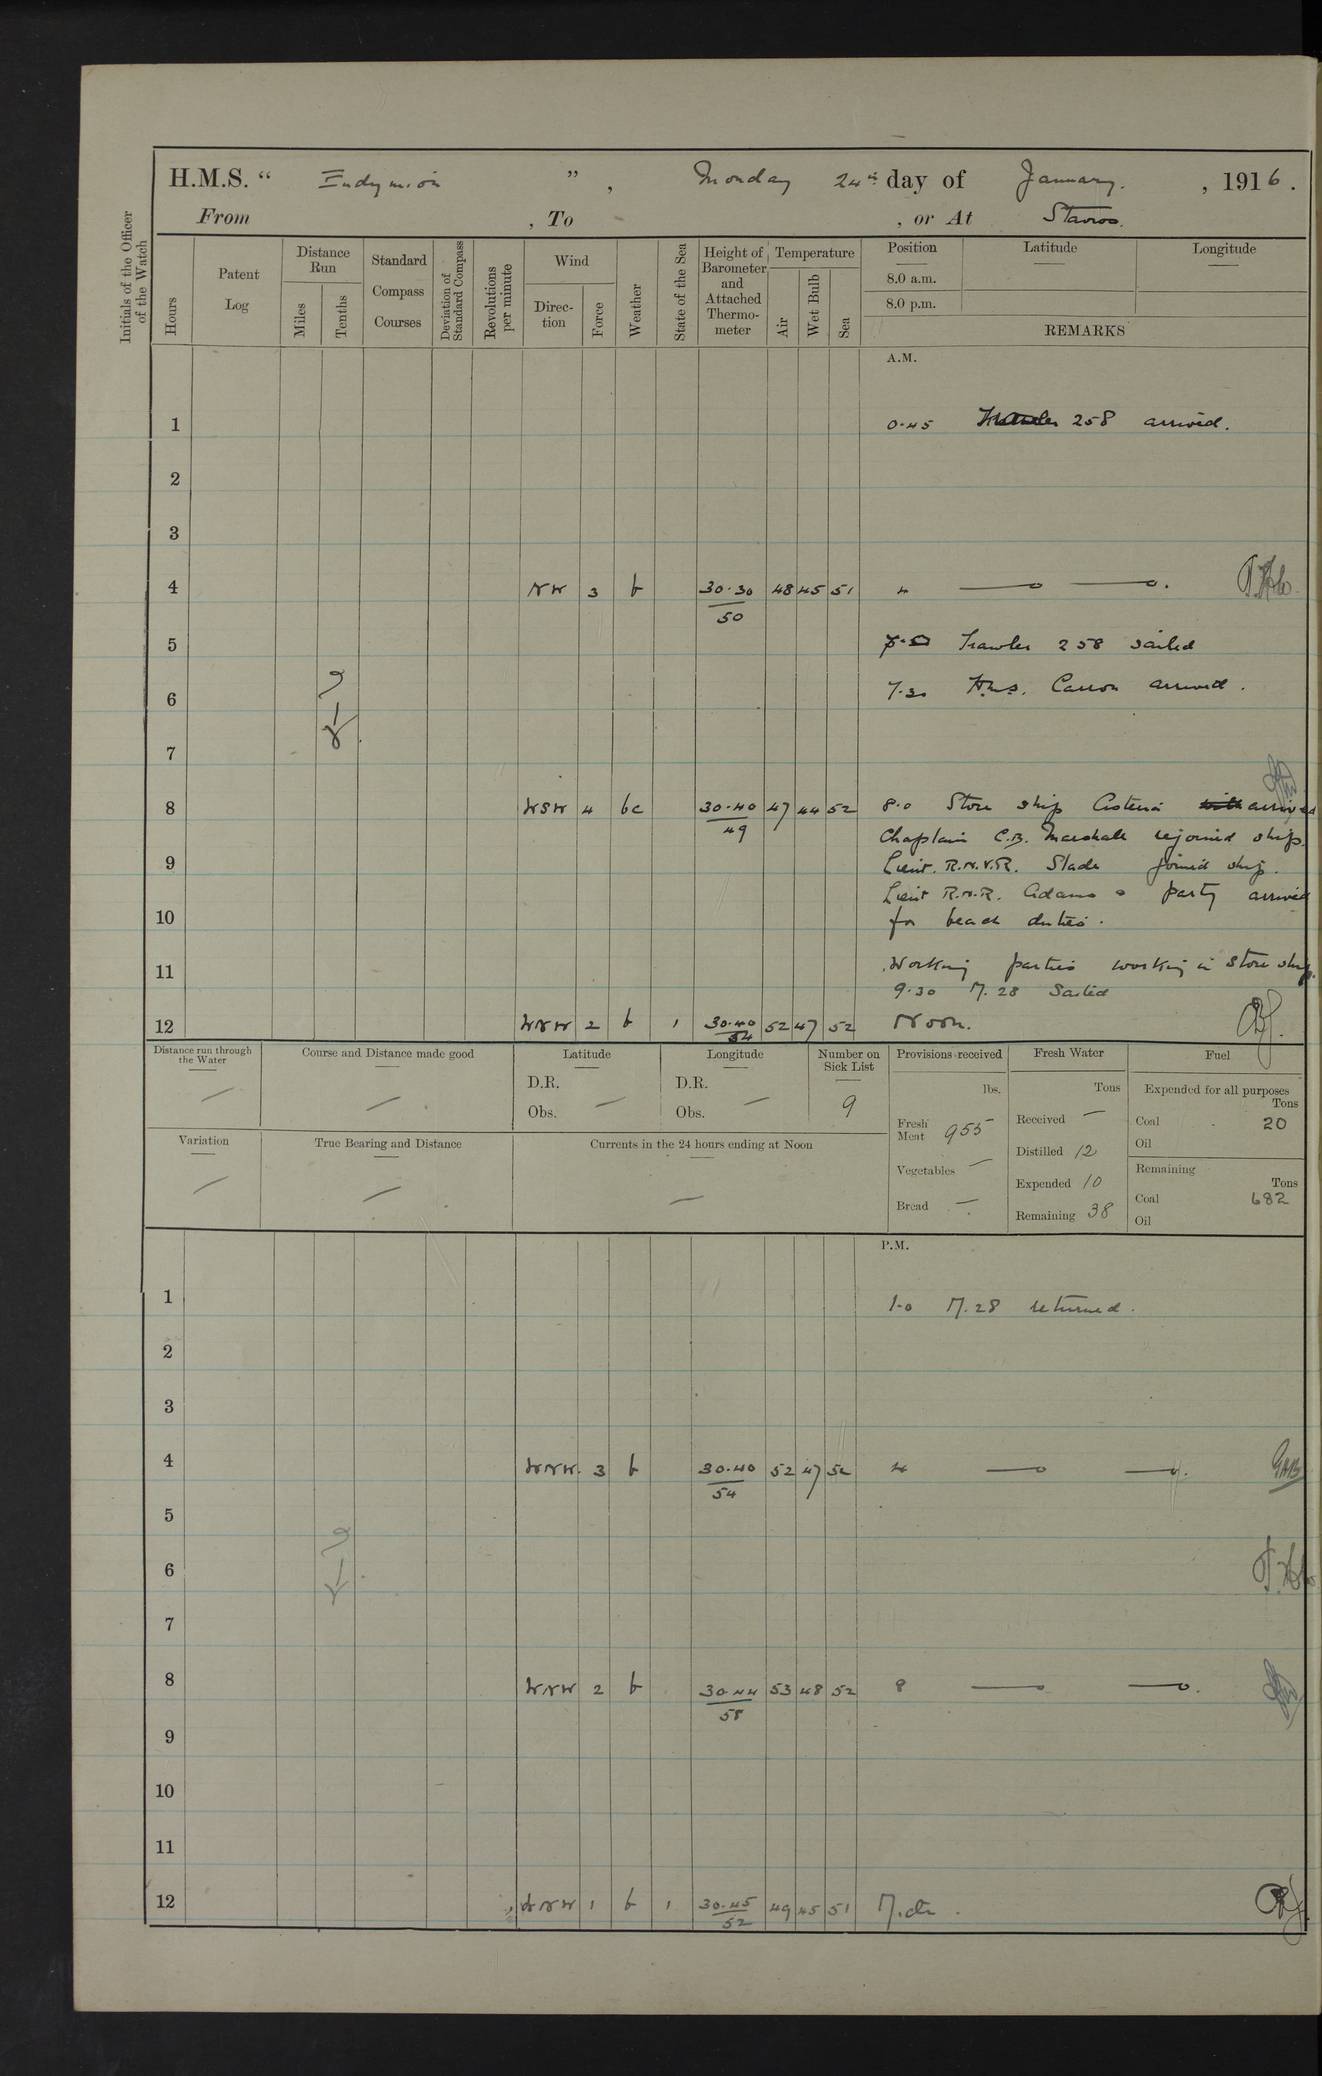 H.M.S. “ Endymion ” , Monday 24th day of January. , 1916.
From , To , or At Stavros.
Initials of the Officer of the Watch
Hours
Patent Log
Distance Run
Miles
Tenths
Standard Compass Courses
Deviation of Standard Compass
Revolutions per minute
Wind
Direction
Force
Weather
State of the Sea
Height of Barometer and Attached Thermometer
Temperature
Air
Wet Bulb
Sea
Position
Latitude
Longitude
8.0 a.m.
8.0 p.m.
REMARKS
A.M.
1 0.45 Trawler 258 arrived.
2
3
4 NW 3 b 30.30 48 45 51 4
50
5 Trawler 258 sailed
6 7.30 H.M.S. Carron arrived.
7
8 WSW 4 bc 30.40 47 44 52 8.0 Store ship arrived
49
Chaplain C.B. Marshall rejoined ship.
9 Lieut. R.N.V.R. Slade joined ship.
Lieut R.N.R. Adams & party arrived
10 for beach duties.
11 Working parties working in store ship.
9.30 M.28 Sailed
12 WNW 2 b 1 30.40 52 47 52 Noon.
54
Distance run through the Water
Course and Distance made good
Latitude
D.R.
Obs.
Longitude
D.R.
Obs.
Number on Sick List
9
Provisions received
lbs.
Fresh Meat 955
Vegetables —
Bread —
Fresh Water
Tons
Received —
Distilled 12
Expended 10
Remaining 38
Fuel
Expended for all purposes
Tons
Coal 20
Oil
Remaining
Tons
Coal 682
Oil
Variation
True Bearing and Distance
Currents in the 24 hours ending at Noon
P.M.
1 1.0 M.28 returned.
2
3
4 WNW. 3 b 30.40 52 47 52 4
54
5
6
7
8 WNW 2 b 30.44 53 48 52 8
58
9
10
11
12 WNW 1 b 1 30.45 49 45 51 Mdt.
52